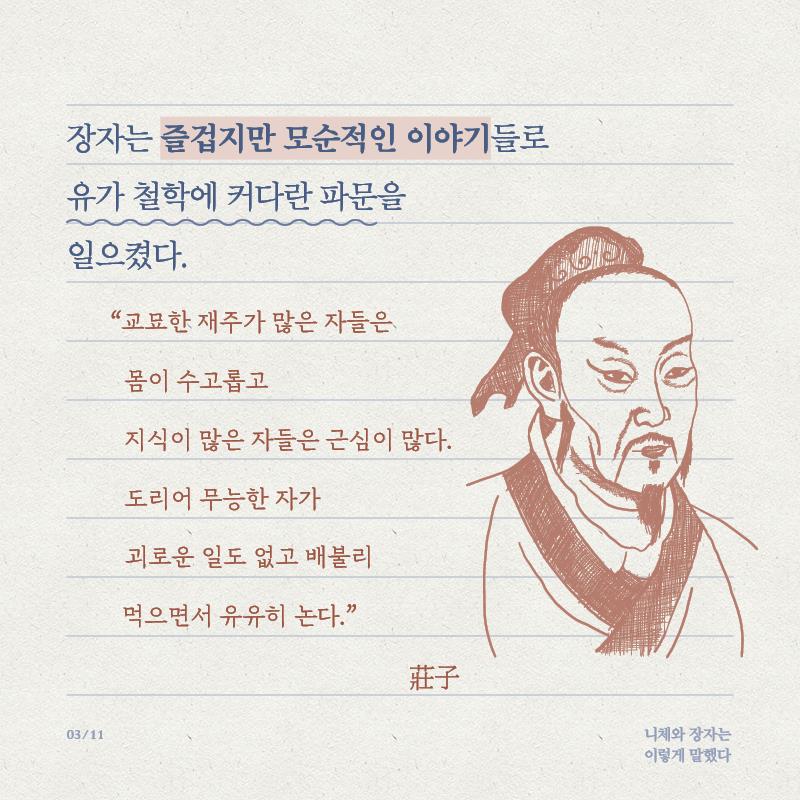 장자는 즐겁지만 모순적인 이야기들로
유가 철학에 커다란 파문을
일으켰다.
“교묘한 재주가 많은 자들은
몸이 수고롭고
지식이 많은 자들은 근심이 많다.
도리어 무능한 자가
괴로운 일도 없고 배불리
먹으면서 유유히 논다.”
莊子
03/11
니체와 장자는
이렇게 말했다